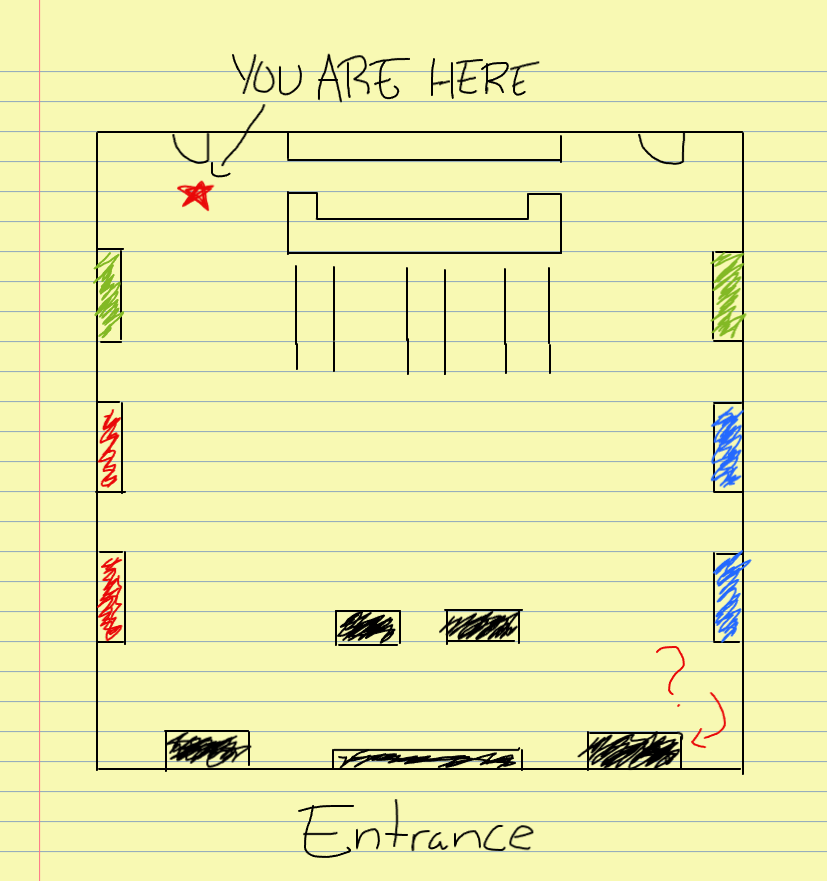 YOU ARE HERE
?
Entrance